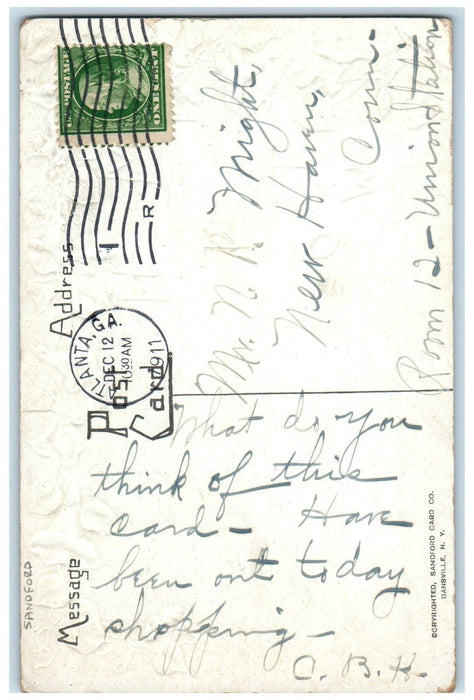 U.S. POSTAGE
ONE CENT
1
R
ATLANTA, GA.
DEC 12
1030AM
1911
Post
Card
Address
Mr. N. R. Might,
New Haven,
Conn-
Room 12 - Union Station
Message
What do you
think of this
card - Have
been out today
shopping -
C. B. H.
©CRYRIGHTED, SANDFORD CARD CO.
DANSVILLE, N. Y.
SANDFORD